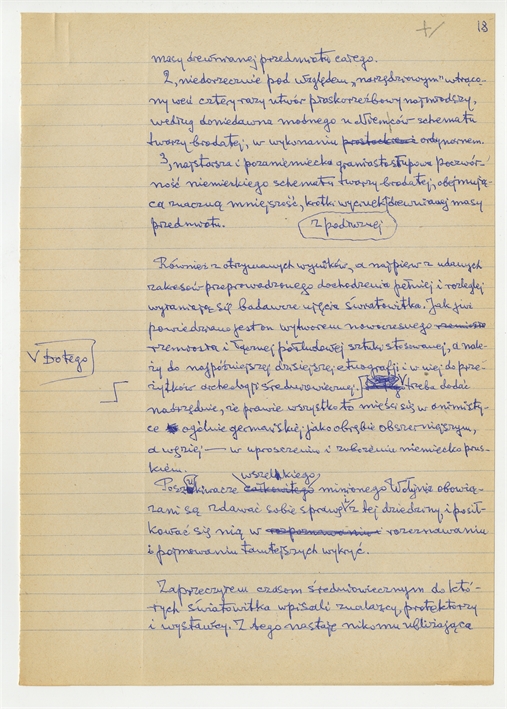 +/ 18
masy drewnianej przedmiotu całego.
2, niedorzecznie pod względem „narzędziowym" wtrąco-
ny weń cztery razy utwór płaskorzeźbowy najmłodszy,
według doniedawna modnego u Niemców schematu
twarzy brodatej, w wykonaniu ordynarnem.
3, najstarsza i pozaniemiecka graniastosłupowa poczwór-
ność niemieckiego schematu twarzy brodatej, obejmują-
ca znaczną mniejszość, krótki wycinek drewnianej masy
przedmiotu. z podłużnej
Również z otrzymanych wyników, a najpierw z udanych
zakresów przeprowadzonego dochodzenia pełniej i rozleglej
wyłaniają się badawcze ujęcia światowitka. Jak już
powiedziano jest on wytworem nowoczesnego
rzemiosła i łącznej półludowej sztuki stosowanej, a nale-
V Do tego
ży do najpóźniejszej dzisiejszej etnografji i w niej do prze-
żytków archeologji średniowiecznej. V trzeba dodać
nadrzędnie, że prawie wszystko to mieści się w onimisty-
ce ogólnie germańskiej jako obrębie obszerniejszym,
a węziej — w uproszczeniu i zubożeniu niemiecko prus-
kiem.
wszelakiego
Poszukiwacze całkowitego minionego Wołynia obowią-
zani są zdawać sobie sprawę z tej dziedziny i posił-
kować się nią w rozpoznawaniu rozeznawaniu
i pojmowaniu tamtejszych wykryć.
Zaprzeczyłem czasom średniowiecznym do któ-
rych światowitka wpisali znalazcy, protektorzy
i wystawcy. Z tego nastaje nikomu ubliżająca